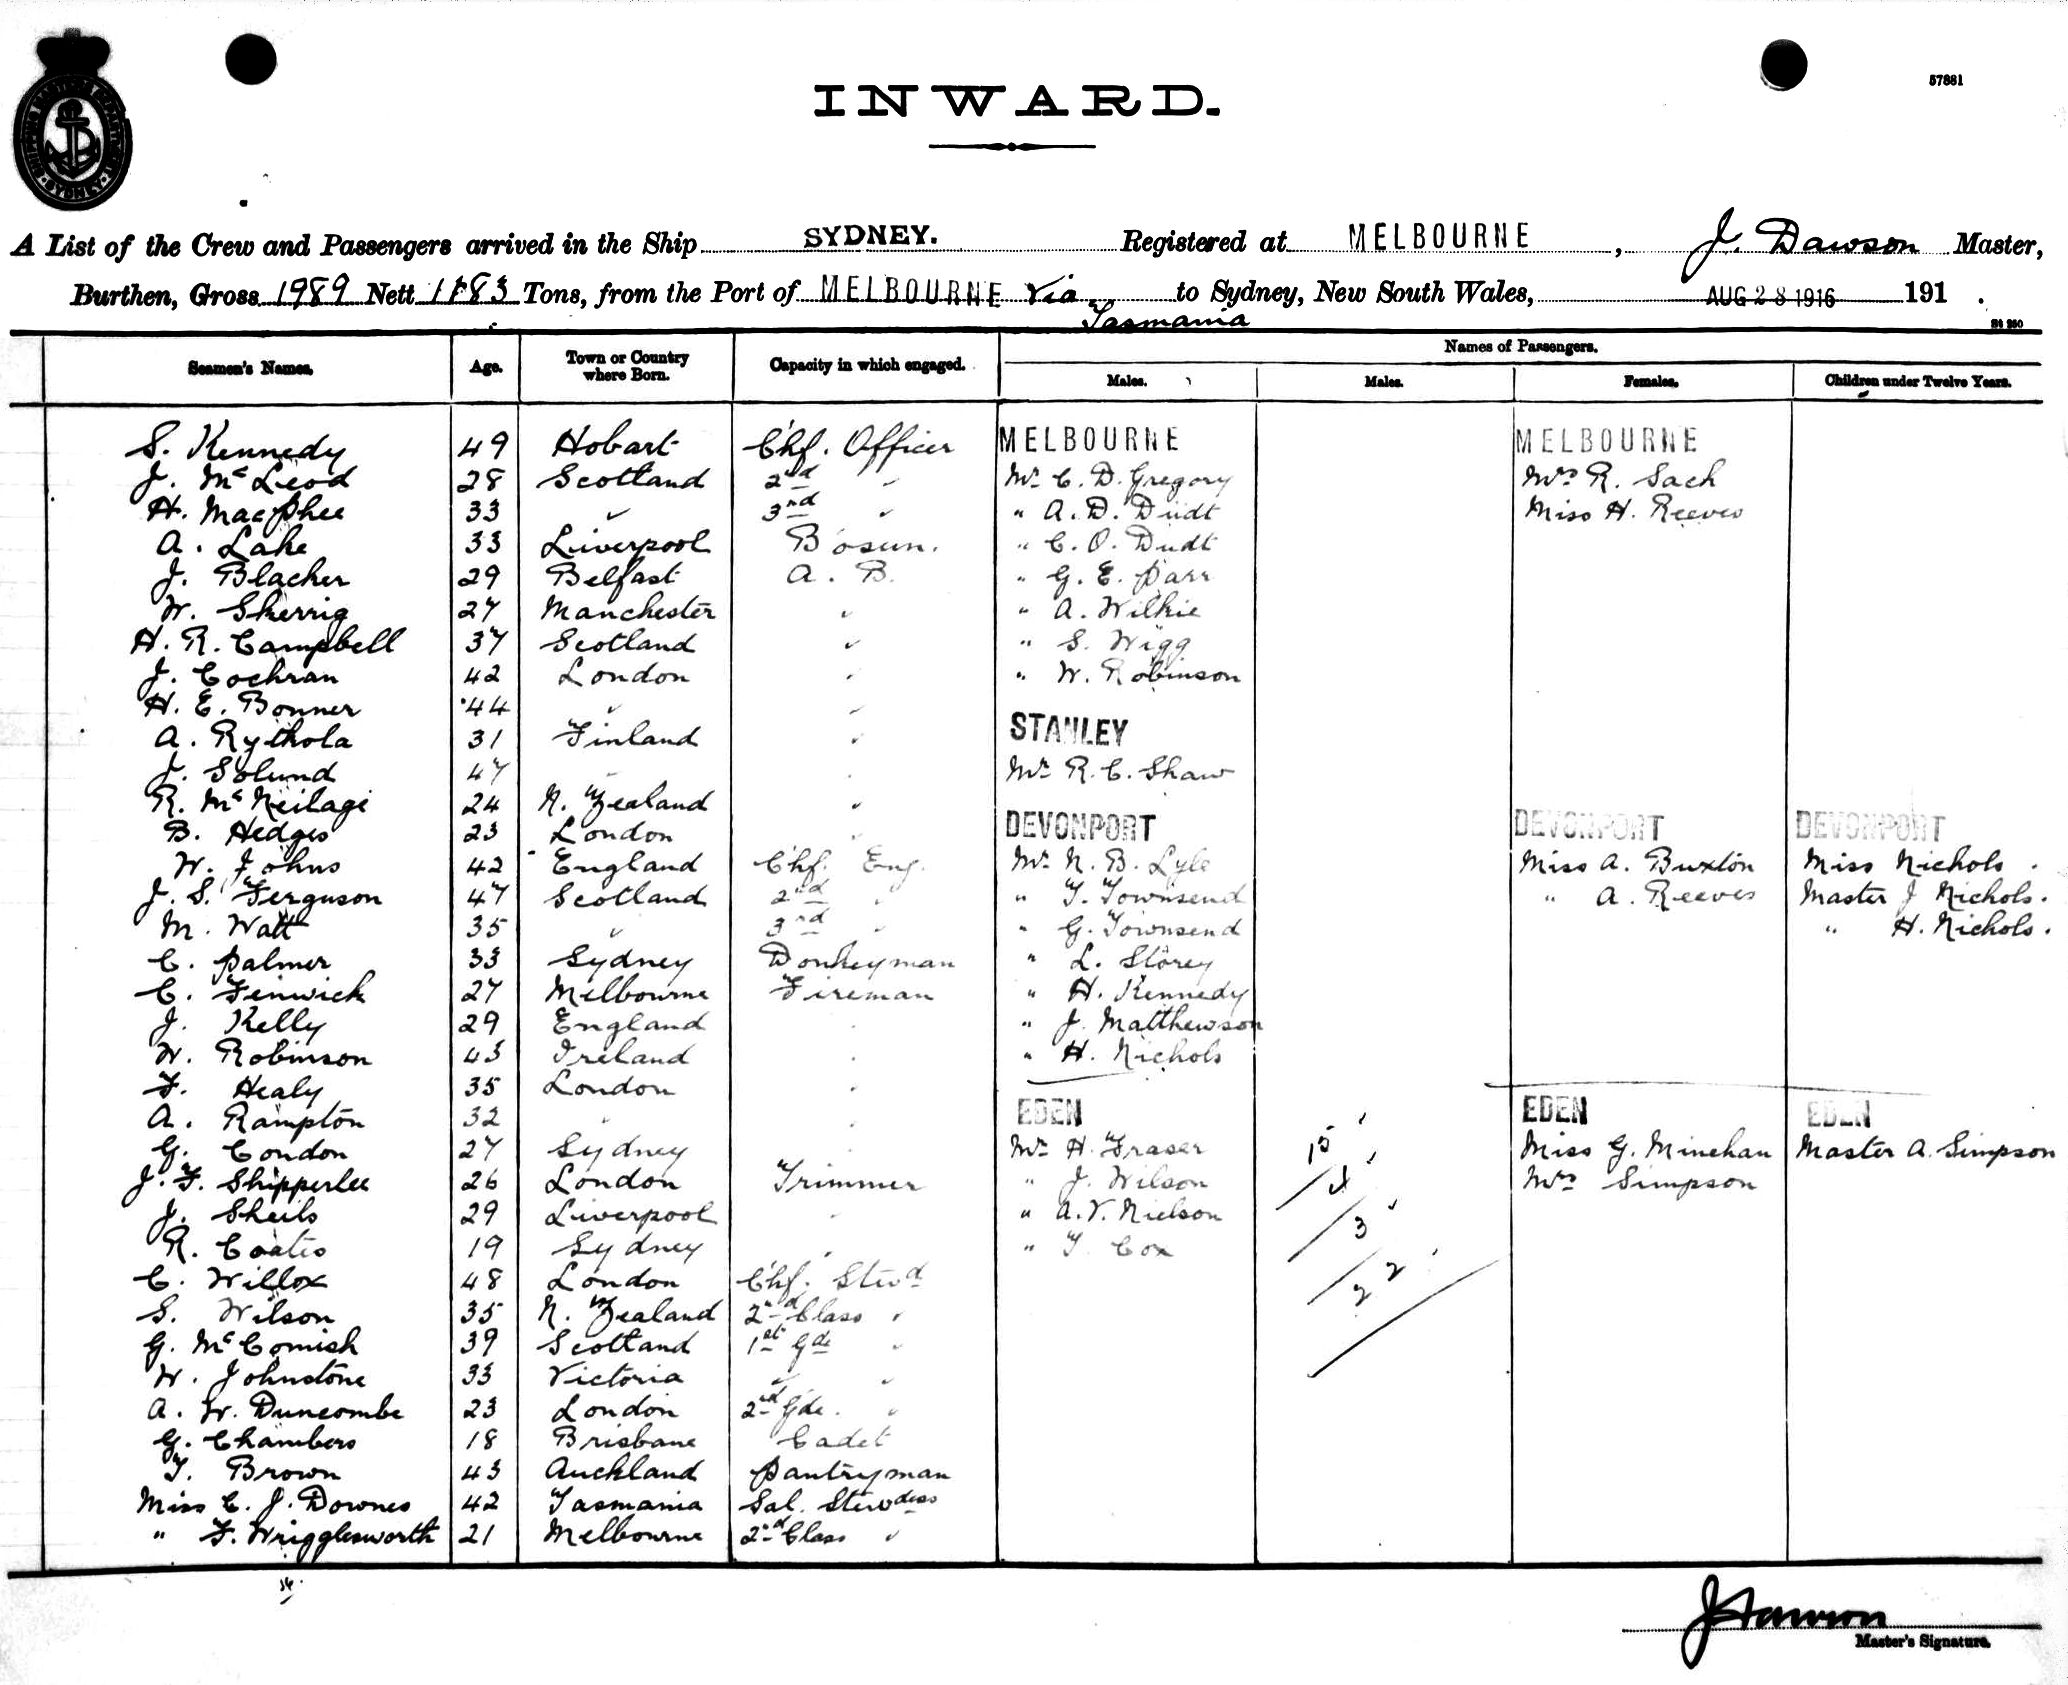 57881
INWARD.
SYDNEY
A List of the Crew and Passengers arrived in the Ship SYDNEY. Registered at MELBOURNE, J. Dawson Master,
Burthen, Gross 1989 Nett Tons, from the Port of MELBOURNE Via Tasmania to Sydney, New South Wales, AUG 28 1916 191 .
Seamen's Names. Age. Town or Country where Born. Capacity in which engaged. Names of Passengers.
Males. Males. Females. Children under Twelve Years.
S. Kennedy 49 Hobart Chf. Officer MELBOURNE MELBOURNE
J. McLeod 28 Scotland 2nd " Mr C. D. Gregory Mrs R. Sach
H. MacPhee 33 " 3rd " " A. D. Dudt Miss H. Reeves
A. Lake 33 Liverpool Bosun. " C. O. Dudt
J. Blacher 29 Belfast A. B. " G. E. Parr
W. Skerrig 27 Manchester " " A. Wilkie
H. R. Campbell 37 Scotland " " S. Wigg
J. Cochran 42 London " " W. Robinson
H. E. Bonner 44 " "
A. Rythola 31 Finland " STANLEY
J. Solund 47 " " Mr R. C. Shaw
R. McNeilage 24 N. Zealand "
B. Hedges 23 London " DEVONPORT DEVONPORT DEVONPORT
W. Johns 42 England Chf. Eng. Mr N. B. Lyle Miss A. Buxton Miss Nichols .
J. S. Ferguson 47 Scotland 2nd " " T. Townsend " A. Reeves Master J Nichols.
M. Watt 35 " 3rd " " G. Townsend " H. Nichols.
C. Palmer 33 Sydney Donkeyman " L. Storey
C. Fenwick 27 Melbourne Fireman " H. Kennedy
J. Kelly 29 England " " J. Matthewson
W. Robinson 43 Ireland " " H. Nichols
F. Healy 35 London "
A. Rampton 32 " " EDEN EDEN EDEN
G. Condon 27 Sydney " Mr H. Fraser 15 Miss G. Minehan Master A. Simpson
J. F. Shipperlee 26 London Trimmer " J. Wilson 4 Mrs Simpson
J. Sheils 29 Liverpool " " A. V. Nielson 3
R. Coates 19 Sydney " " T. Cox
C. Willox 48 London Chf. Stewd 22
S. Wilson 35 N. Zealand 2nd Class "
G. McComish 39 Scotland 1st Gde "
W. Johnstone 33 Victoria " "
A. W. Duncombe 23 London 2nd Gde. "
G. Chambers 18 Brisbane Cadet
T. Brown 43 Auckland Pantryman
Miss C. J. Downes 42 Tasmania Sal. Stewdess
" F. Wrigglesworth 21 Melbourne 2nd Class "
J Dawson
Master's Signature.